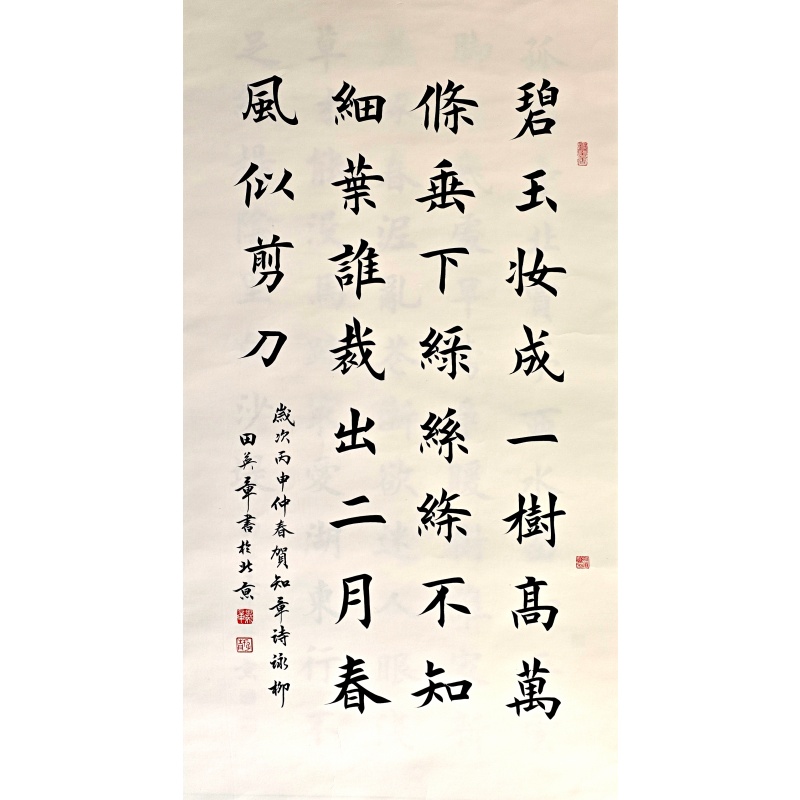 碧玉妆成一樹髙萬
條垂下綠絲絛不知
細葉誰裁出二月春
風似剪刀
歲次丙申仲春賀知章诗詠柳
田英章書於北京